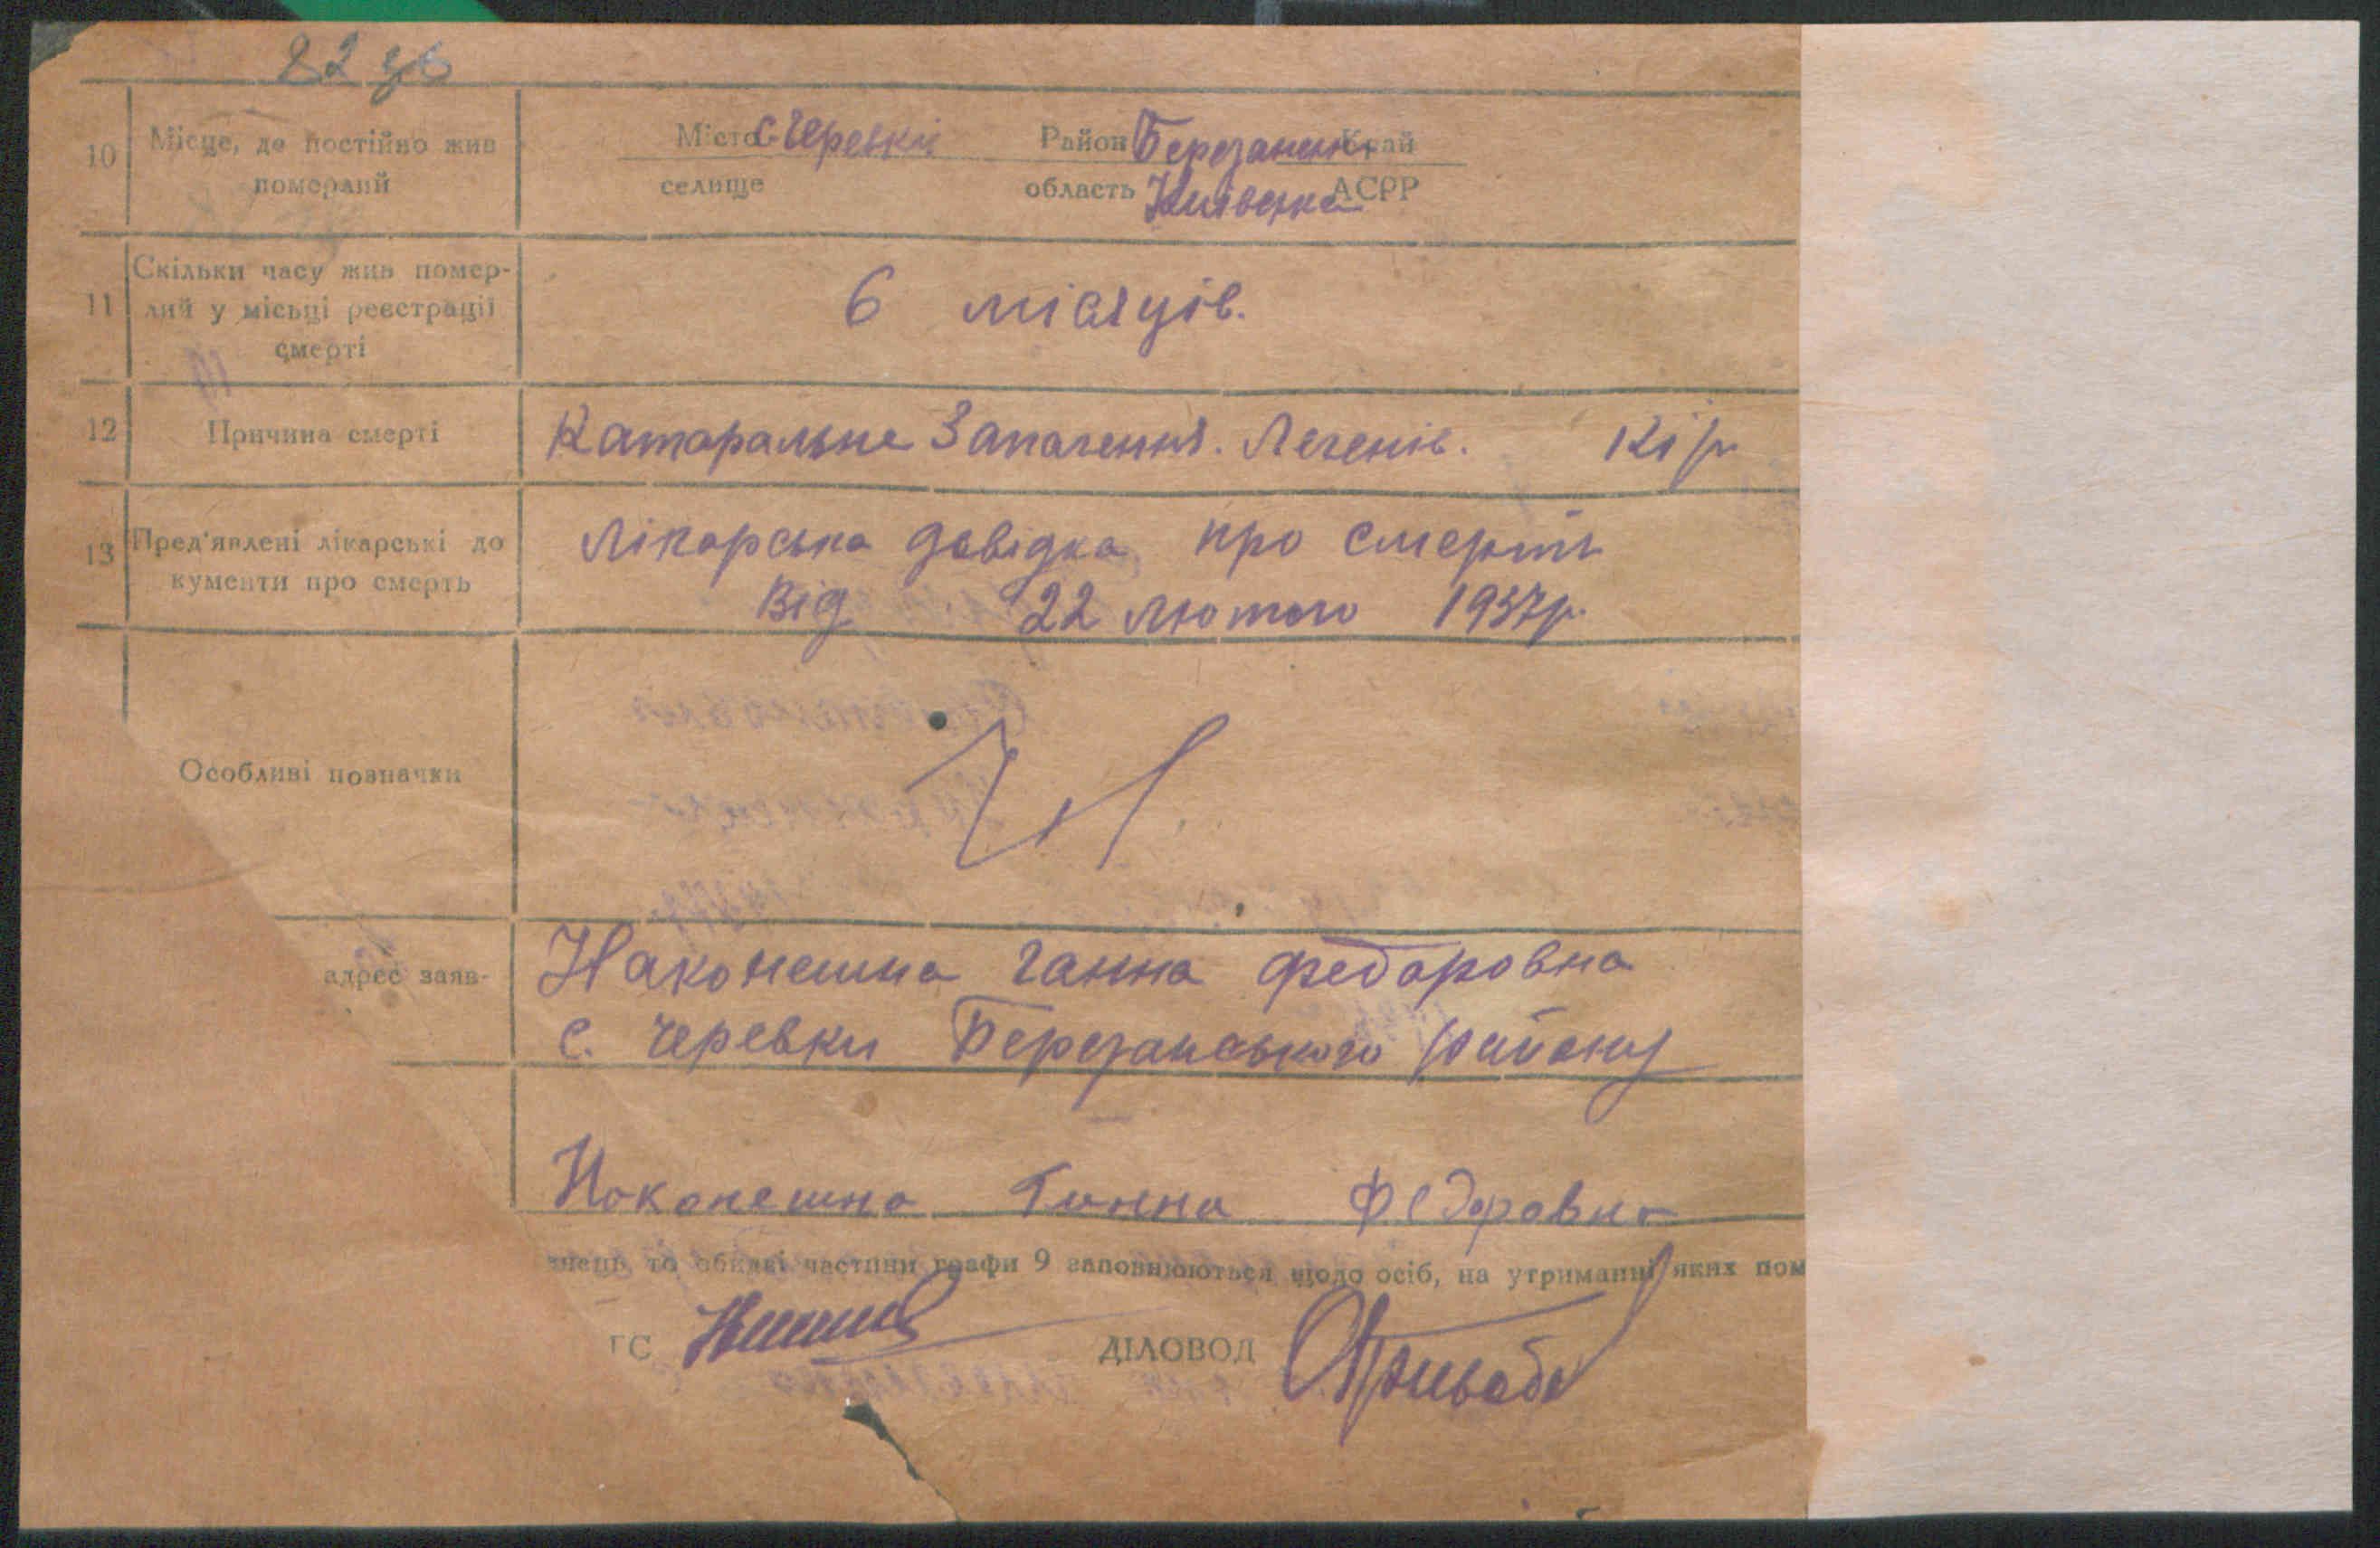 82 зв
10 Місце, де постійно жив Місто с. Черевки Район Березанськ Край
померлий селище область Київська АСРР
Скільки часу жив помер-
11 лий у місьці реєстрації 6 місяців.
смерті
12 Причина смерті Катаральне Запаления. Легенів. Кір
13 Пред'явлені лікарські до Лікарська довідка про смерть
кументи про смерть від 22 лютого 1937р.
Особливі позначки
адрес заяв- Наконешна Ганна Федоровна
с. Черевки Березанського району
Наконешна Ганна Федоровна
знець, то обидві частини графи 9 заповнюються щодо осіб, на утриманні яких пом
ГС ДІЛОВОД